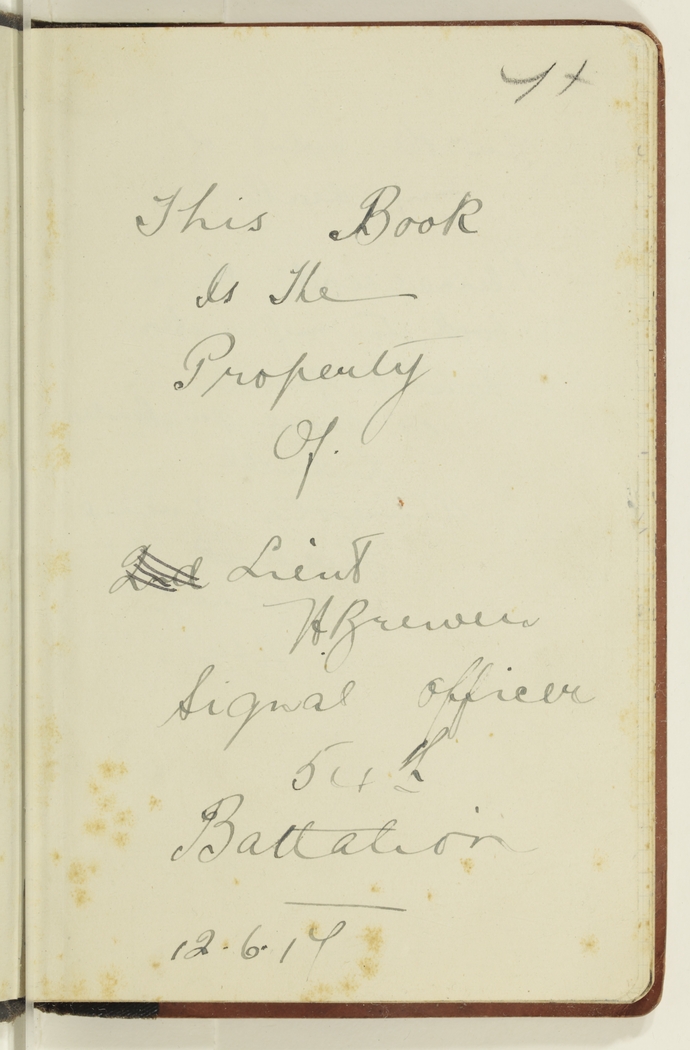 This Book
Is The
Property
Of.
2nd Lieut
H. Brewer
Signal officer
54th
Battalion
12.6.17